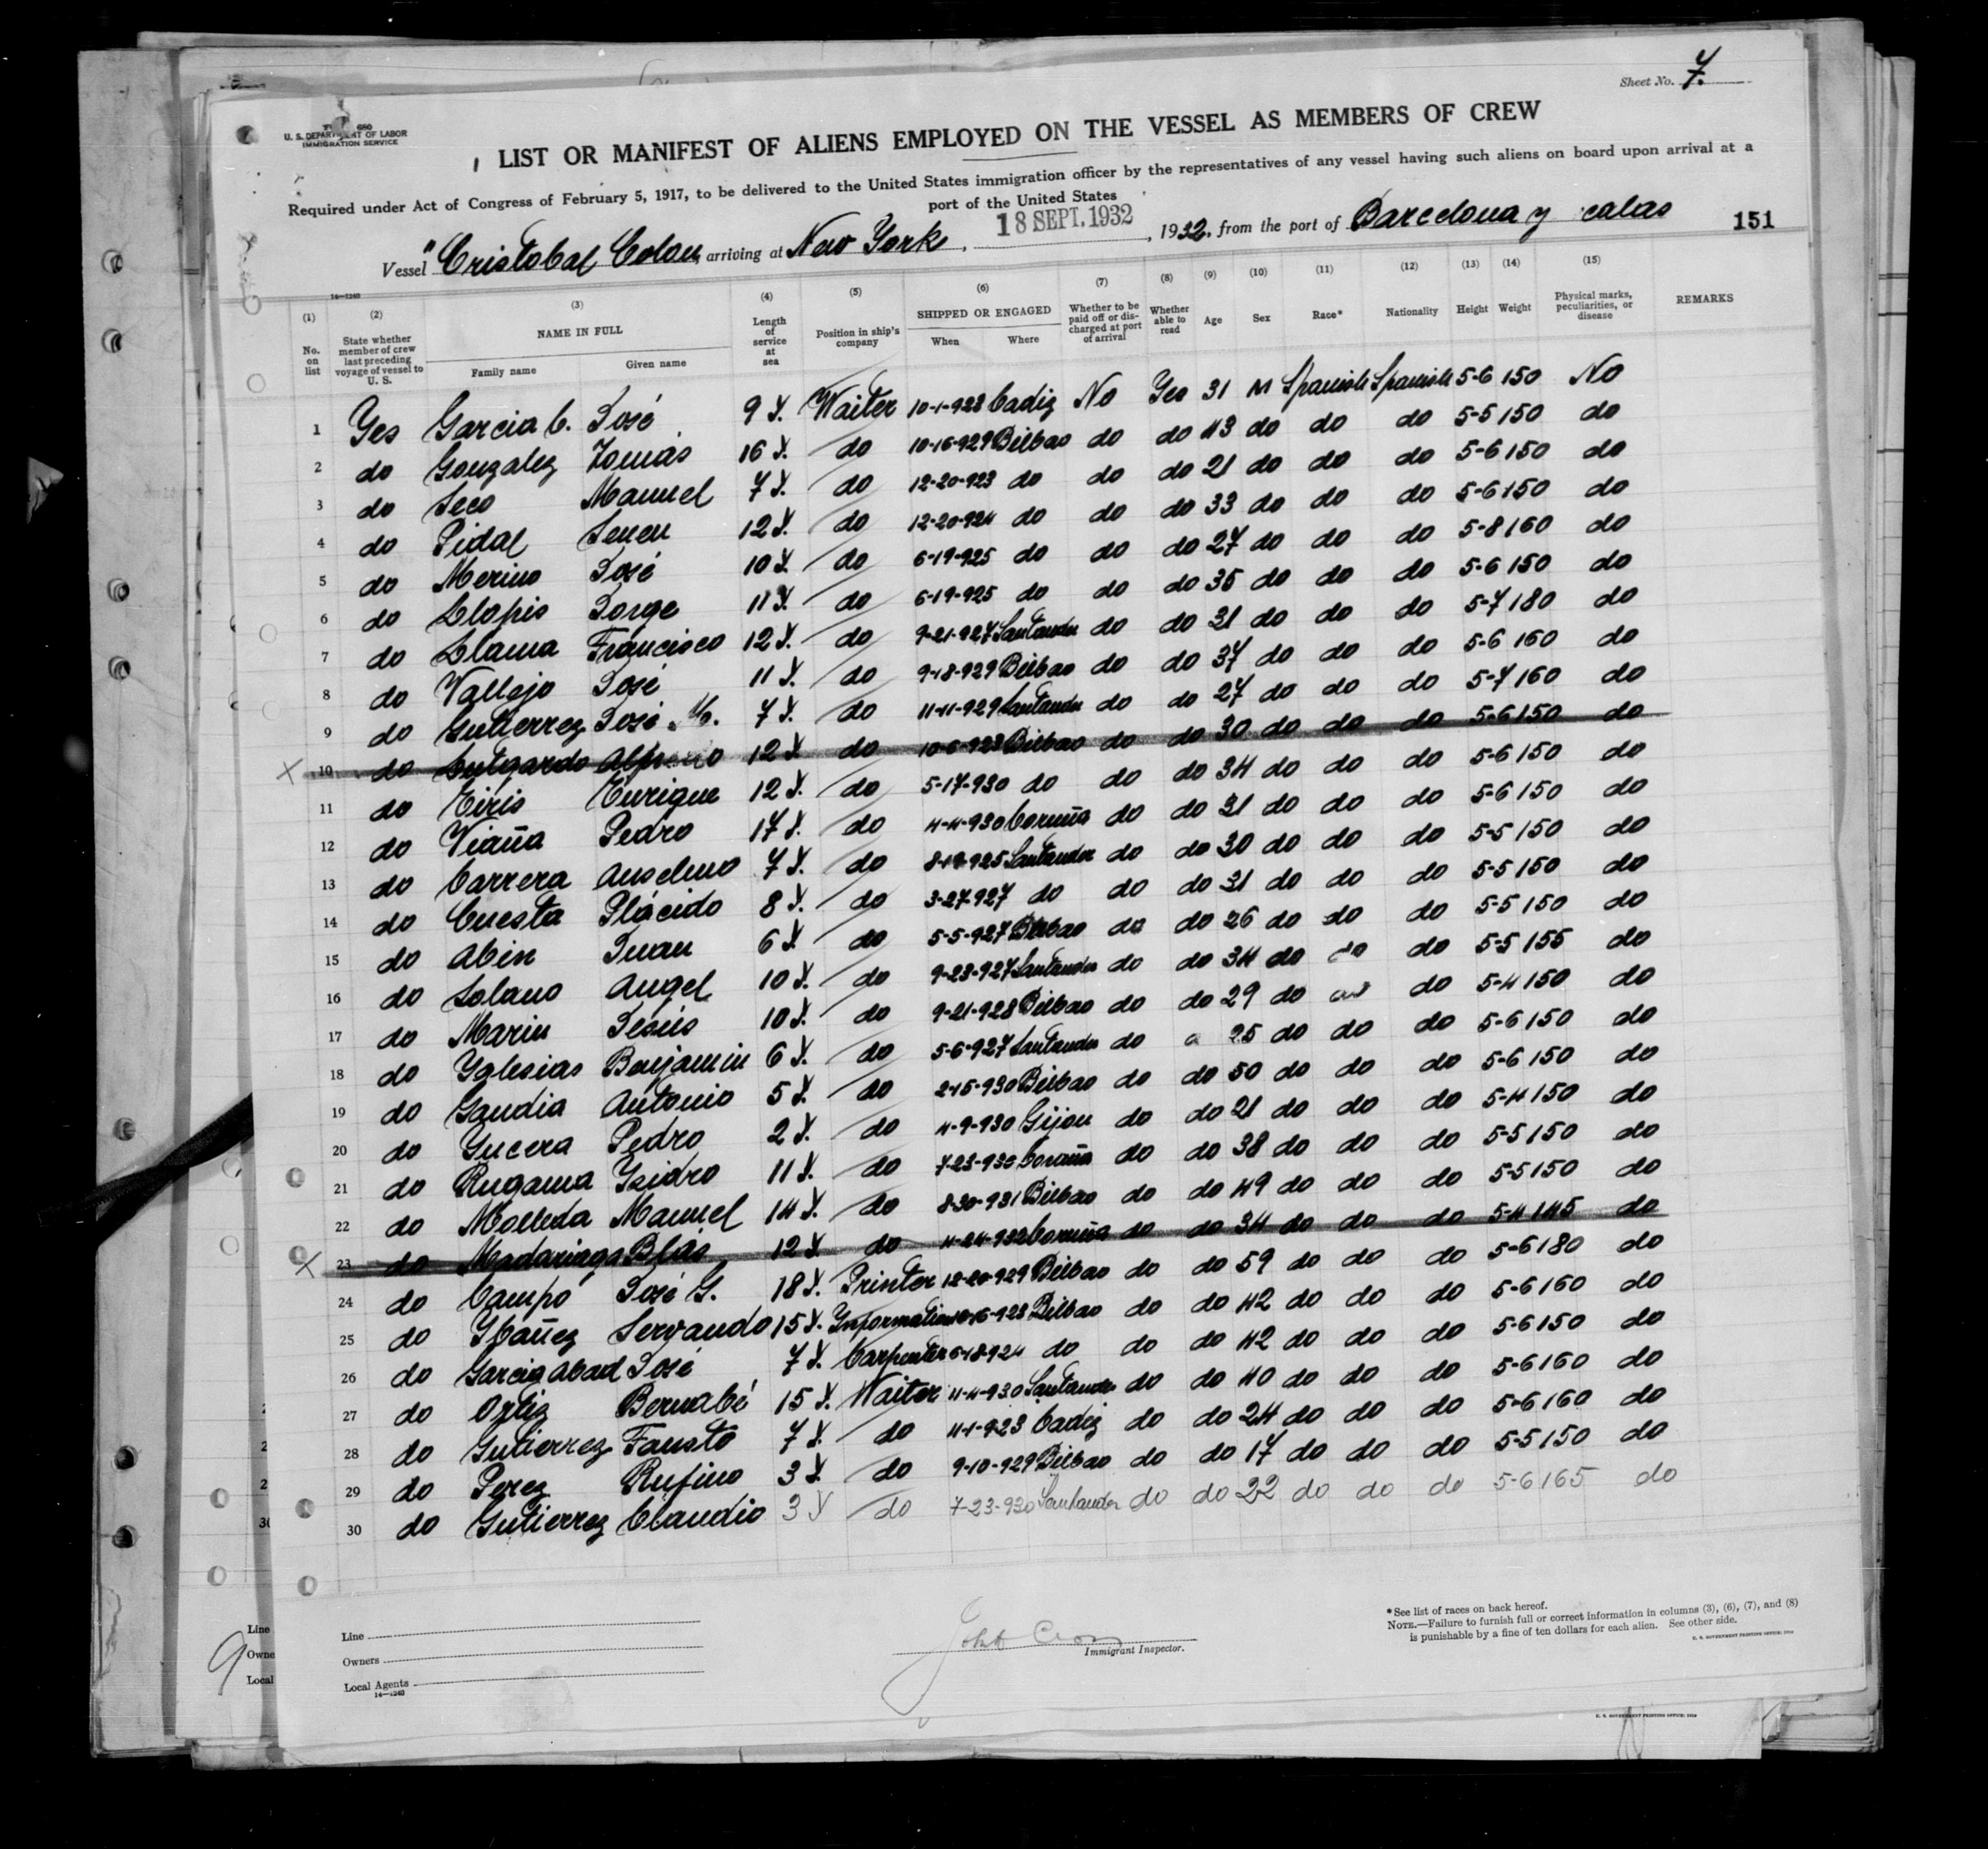 Sheet No. 7.
680
U. S. DEPARTMENT OF LABOR
IMMIGRATION SERVICE
LIST OR MANIFEST OF ALIENS EMPLOYED ON THE VESSEL AS MEMBERS OF CREW
Required under Act of Congress of February 5, 1917, to be delivered to the United States immigration officer by the representatives of any vessel having such aliens on board upon arrival at a
port of the United States
Vessel "Cristobal Colon, arriving at New York, 18 SEPT. 1932, 1932, from the port of Barcelona y calas 151
14—1240
(1) (2) (3) (4) (5) (6) (7) (8) (9) (10) (11) (12) (13) (14) (15)
No. on list State whether member of crew last preceding voyage of vessel to U. S. NAME IN FULL Family name Given name Length of service at sea Position in ship's company SHIPPED OR ENGAGED When Where Whether to be paid off or discharged at port of arrival Whether able to read Age Sex Race* Nationality Height Weight Physical marks, peculiarities, or disease REMARKS
1 Yes Garcia C. José 9 Y. Waiter 10-1-923 Cadiz No Yes 31 M Spanish Spanish 5-6 150 No
2 do Gonzalez Tomás 16 Y. do 10-16-929 Bilbao do do 43 do do do 5-5 150 do
3 do Seco Manuel 7 Y. do 12-20-923 do do do 21 do do do 5-6 150 do
4 do Pidal Seneu 12 Y. do 12-20-924 do do do 33 do do do 5-6 150 do
5 do Merino José 10 Y. do 6-19-925 do do do 27 do do do 5-8 160 do
6 do Llopis Jorge 11 Y. do 6-19-925 do do do 35 do do do 5-6 150 do
7 do Llama Francisco 12 Y. do 9-21-927 Santander do do 31 do do do 5-7 180 do
8 do Vallejo José 11 Y. do 9-18-929 Bilbao do do 37 do do do 5-6 160 do
9 do Gutierrez José Mª. 7 Y. do 11-11-929 Santander do do 27 do do do 5-7 160 do
10 do Lutgardo 12 Y. do 10-6-923 Bilbao do do 30 do do do 5-6 150 do
11 do Eiris Enrique 12 Y. do 5-17-930 do do do 34 do do do 5-6 150 do
12 do Viaña Pedro 17 Y. do 4-4-930 Coruña do do 31 do do do 5-6 150 do
13 do Carrera Anselmo 7 Y. do 8-19-925 Santander do do 30 do do do 5-5 150 do
14 do Cuesta Plácido 8 Y. do 3-27-927 do do do 31 do do do 5-5 150 do
15 do Abin Juan 6 Y. do 5-5-927 Bilbao do do 26 do do do 5-5 150 do
16 do Solano Angel 10 Y. do 9-23-927 Santander do do 34 do do do 5-5 155 do
17 do Marin Jesús 10 Y. do 9-21-928 Bilbao do do 29 do do do 5-4 150 do
18 do Yglesias Benjamin 6 Y. do 5-6-927 Santander do 25 do do do 5-6 150 do
19 do Gandia Antonio 5 Y. do 2-15-930 Bilbao do do 50 do do do 5-6 150 do
20 do Yucera Pedro 2 Y. do 4-9-930 Gijon do do 21 do do do 5-4 150 do
21 do Rugama Ysidro 11 Y. do 7-23-930 Coruña do do 38 do do do 5-5 150 do
22 do Molleda Manuel 14 Y. do 8-30-931 Bilbao do do 49 do do do 5-5 150 do
23 do Madariaga Blás 12 Y. do 4-24-932 Coruña do do 34 do do do 5-4 145 do
24 do Campó José G. 18 Y. Printer 12-20-929 Bilbao do do 59 do do do 5-6 180 do
25 do Ybañez Servando 15 Y. Information 10-16-923 Bilbao do do 42 do do do 5-6 160 do
26 do Garcia Abad José 7 Y. Carpenter 6-18-924 do do do 42 do do do 5-6 150 do
27 do Ortiz Bernabé 15 Y. Waiter 4-4-930 Santander do do 40 do do do 5-6 160 do
28 do Gutierrez Fausto 7 Y. do 4-1-923 Cadiz do do 24 do do do 5-6 160 do
29 do Perez Rufino 3 Y. do 9-10-929 Bilbao do do 17 do do do 5-5 150 do
30 do Gutierrez Claudio 3 Y do 7-23-930 Santander do do 22 do do do 5-6 165 do
Line
Owners
Local Agents
14—1240
John
Immigrant Inspector.
*See list of races on back hereof.
NOTE.—Failure to furnish full or correct information in columns (3), (6), (7), and (8)
is punishable by a fine of ten dollars for each alien. See other side.
U. S. GOVERNMENT PRINTING OFFICE
Line
Owne
Local
9
U. S. GOVERNMENT PRINTING OFFICE